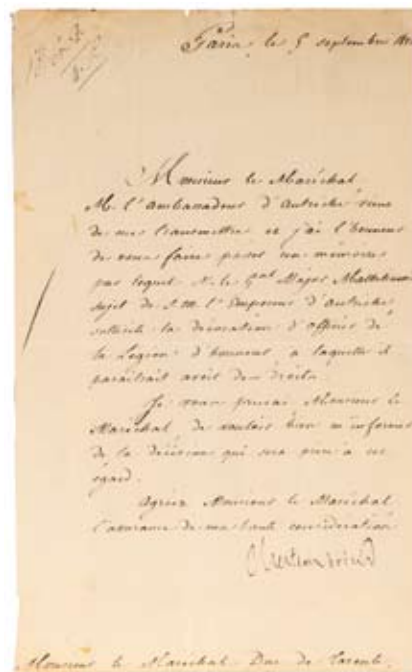 Paris, le 5 septembre
Monsieur le Maréchal
M. l'ambassadeur d'Autriche vient
de me transmettre et j'ai l'honneur
de vous faire passer un mémoire
par lequel M. le Gal Major
sujet de S. M. l'Empereur d'Autriche
sollicite la décoration d'officier de
la Légion d'honneur, à laquelle il
paraîtrait avoir des droits.
Je vous prierai Monsieur le
Maréchal de vouloir bien m'informer
de la décision qui sera prise à cet
égard.
Agréez Monsieur le Maréchal
l'assurance de ma haute considération
Chateaubriand
Monsieur le Maréchal Duc de Tarente.